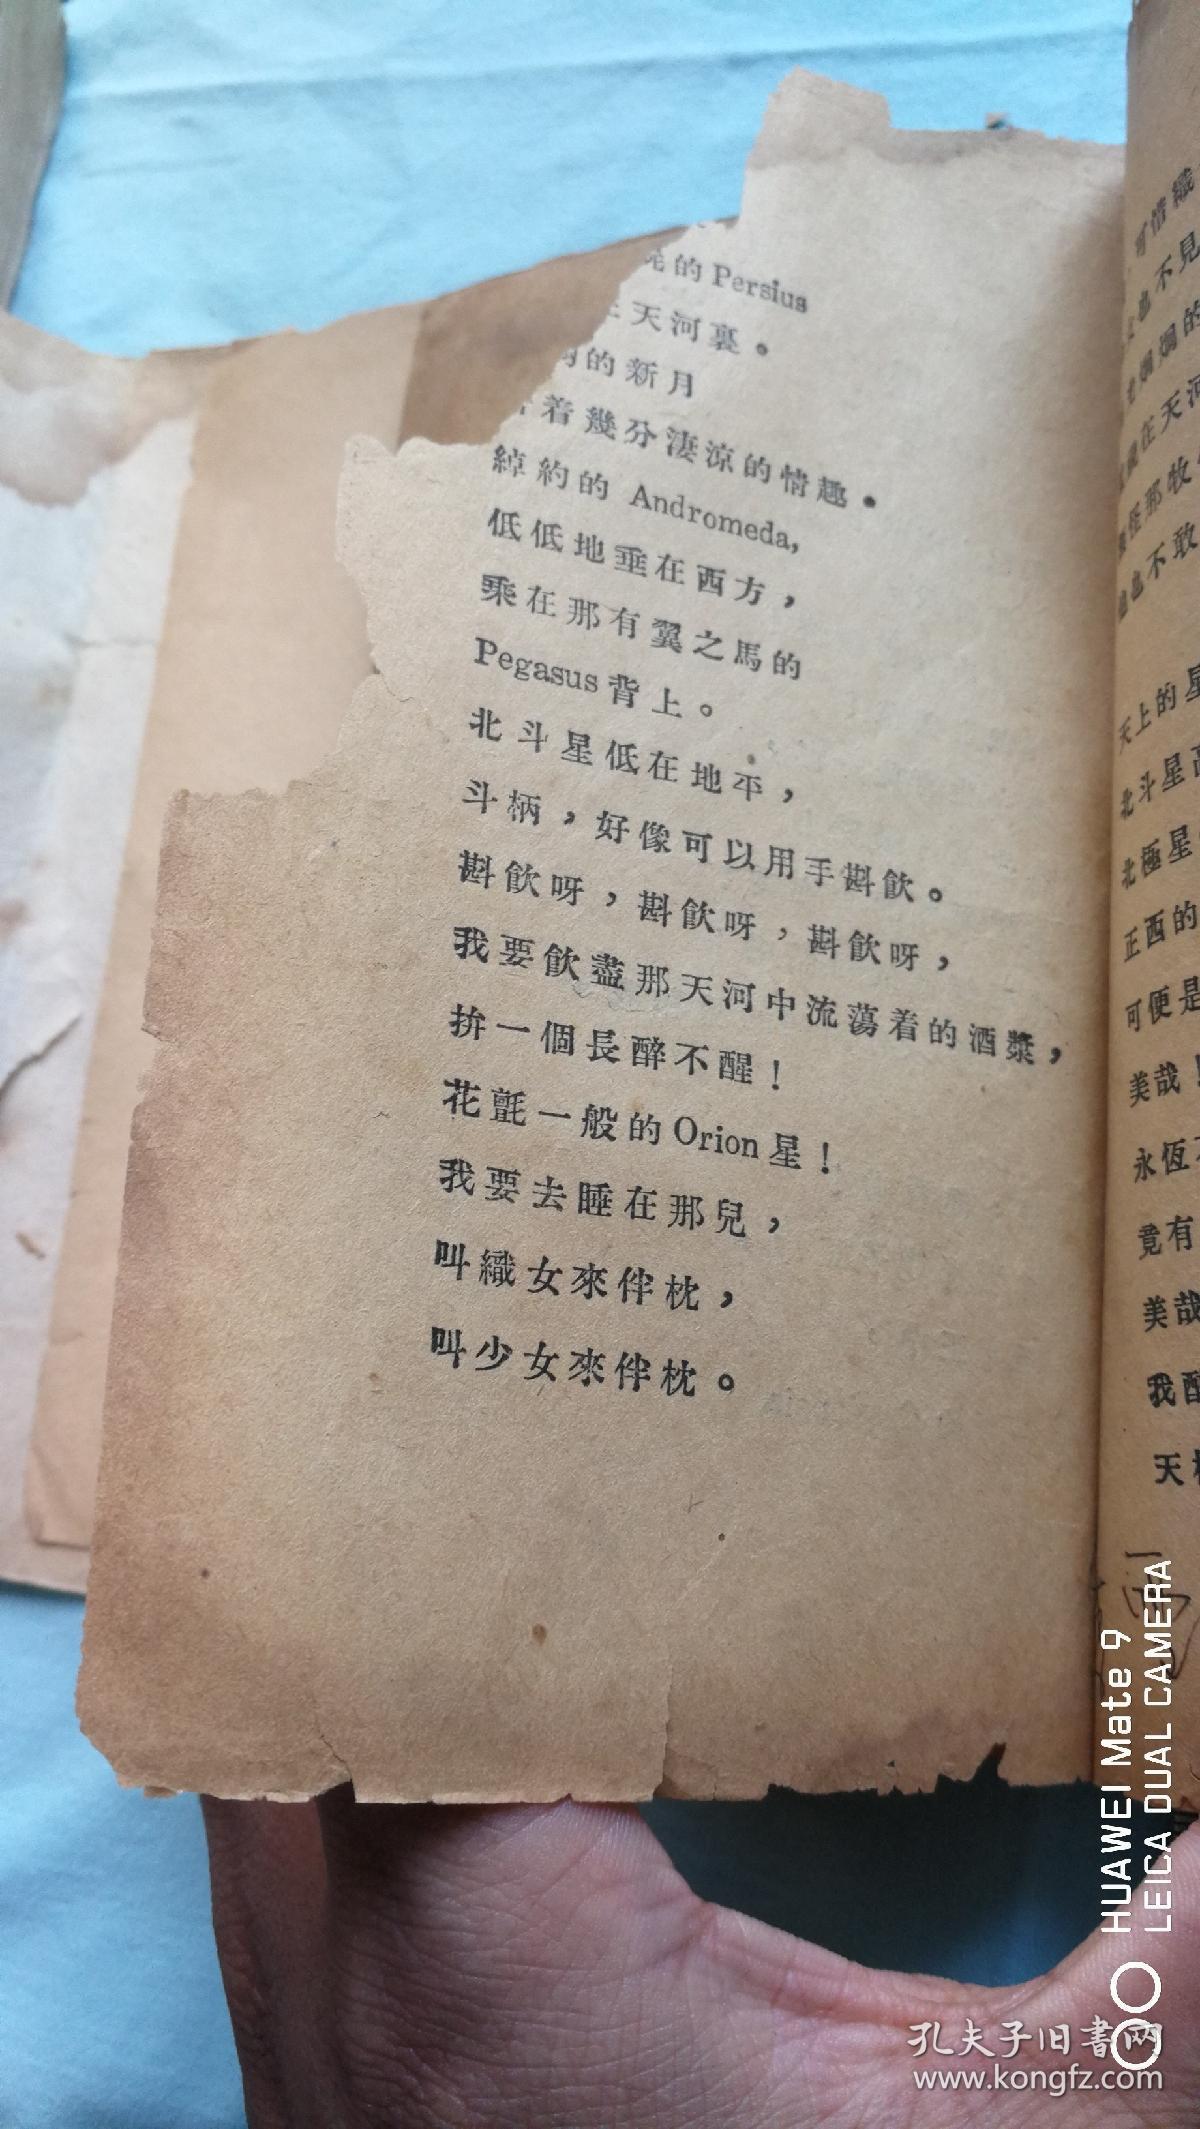 的 Persius
天河裏。
的新月
着幾分淒涼的情趣。
綽約的 Andromeda,
低低地垂在西方，
乘在那有翼之馬的
Pegasus 背上。
北斗星低在地平，
斗柄，好像可以用手斟飲。
斟飲呀，斟飲呀，斟飲呀，
我要飲盡那天河中流蕩着的酒漿，
拚一個長醉不醒！
花氈一般的 Orion 星！
我要去睡在那兒，
叫織女來伴枕，
叫少女來伴枕。
可惜織
也不見
光烱烱的
在天河
怪那牧
也不敢
天上的星
北斗星高
北極星
正西的
可便是
美哉！
永恆
竟有
美哉
我醉
天
HUAWEI Mate 9
LEICA DUAL CAMERA
孔夫子旧書网
www.kongfz.com